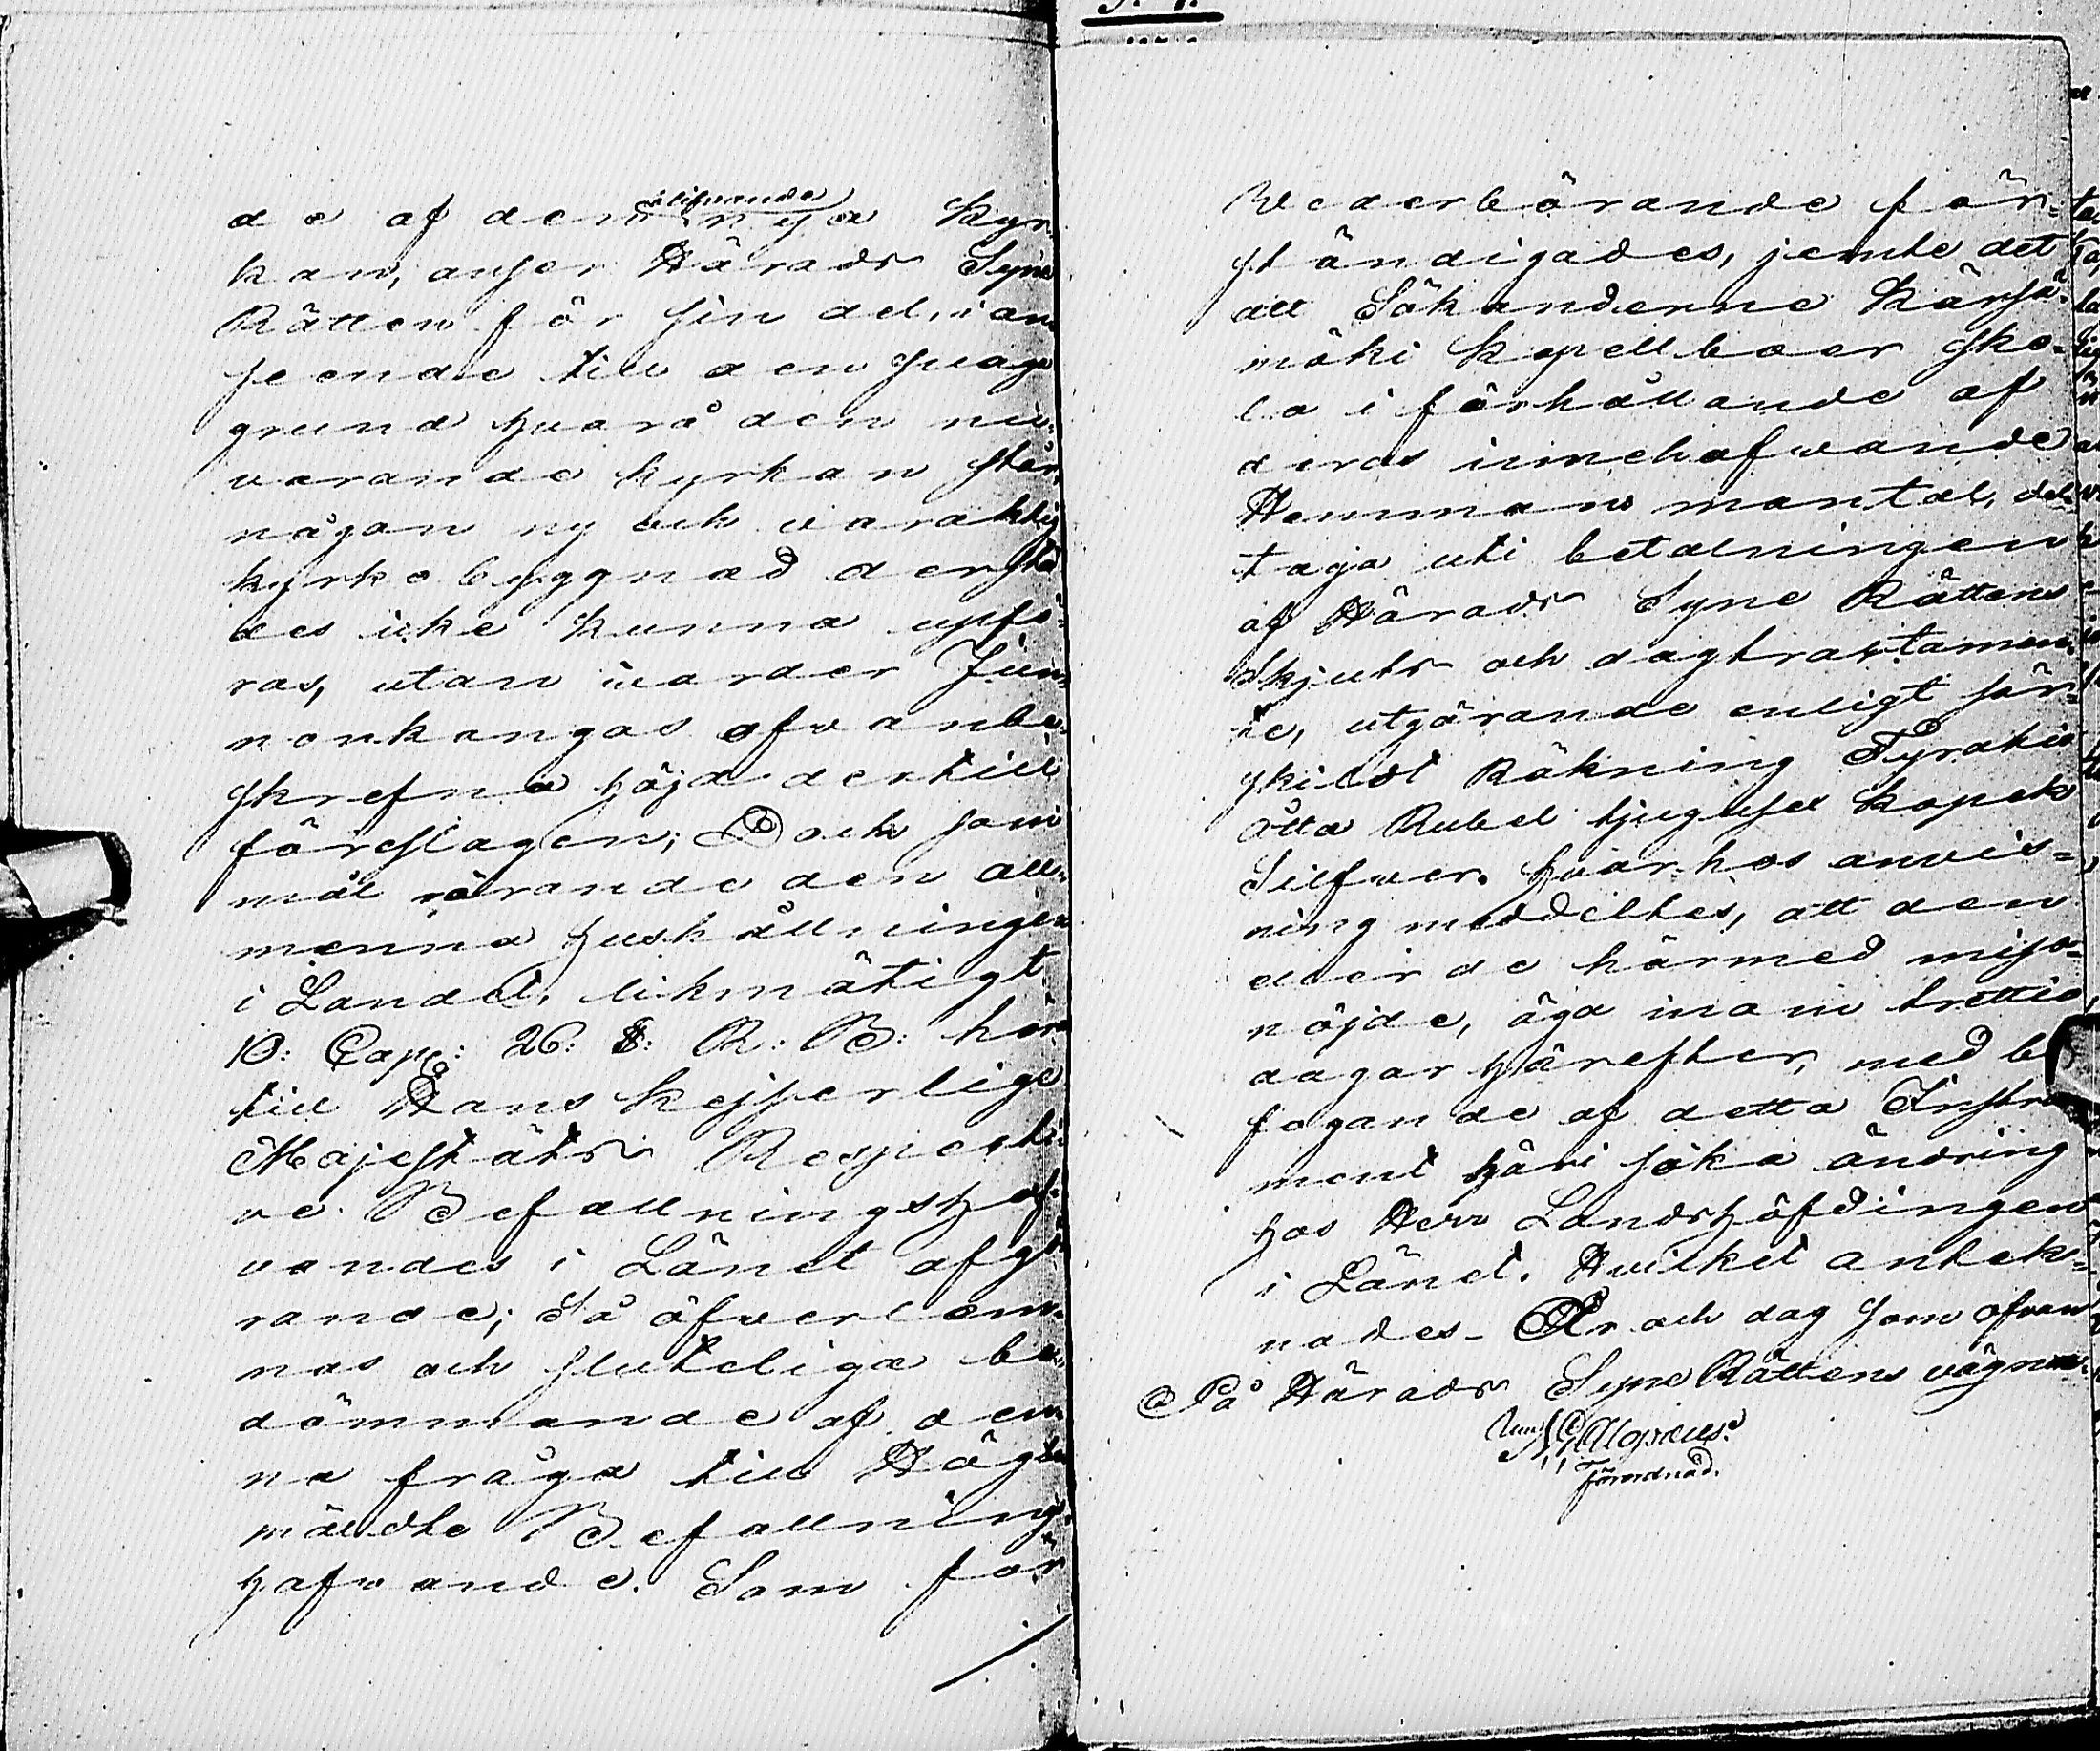 de af den blifvande nya Kyr¬
kan, anser Härads Syne
Rätten för sin del, i an¬
seende till den svaga
grund hvarå den nu¬
varande kyrkan står,
någon ny och varaktig
kyrkobyggnad dersta¬
des icke kunna upfö¬
ras, utan varder Juu¬
nonkangas ofvanbe¬
skrefna höjd dertill
föreslagen; Doch som
mål rörande den all¬
menna hushållningen
i Landet, likmätigt
10: Cap: 26: §: R: B: höra
till Hans Kejserlige
Majestäts Respecti¬
ve Befallningshaf¬
vandes i Länet afgö¬
rande; Så öfverlem¬
nas och sluteliga be¬
dömmande af den¬
na fråga till Högbe¬
mäldte Befallnings
hafvande. Som för
Wederbörande för¬
ständigades, jemte det
att Sökanderne Kärsä¬
mäki Kapellboer sko¬
la i förhållande af
deras innehafvande
Hemmans mantal, del¬
taga uti betalningen
af Härads Syne Rättens
Skjuts och dagtraktamen¬
te, utgörande enligt sär¬
skildt Räkning Fyratio
åtta Rubel tjugusex Kopek
Silfver. hvarhos anvis¬
ning meddeltes, att den
eller de härmed miss¬
nöjde, äga inom trettio
dagar härefter, med bi
fogande af detta Instru
ment häri söka ändring
hos Herr Landshöfdingen
i Länet. Hvilket antek¬
nades. År och dag som ofvan
På Härads Syne Rättens vägnar.
Alopæus.
Förordnad.